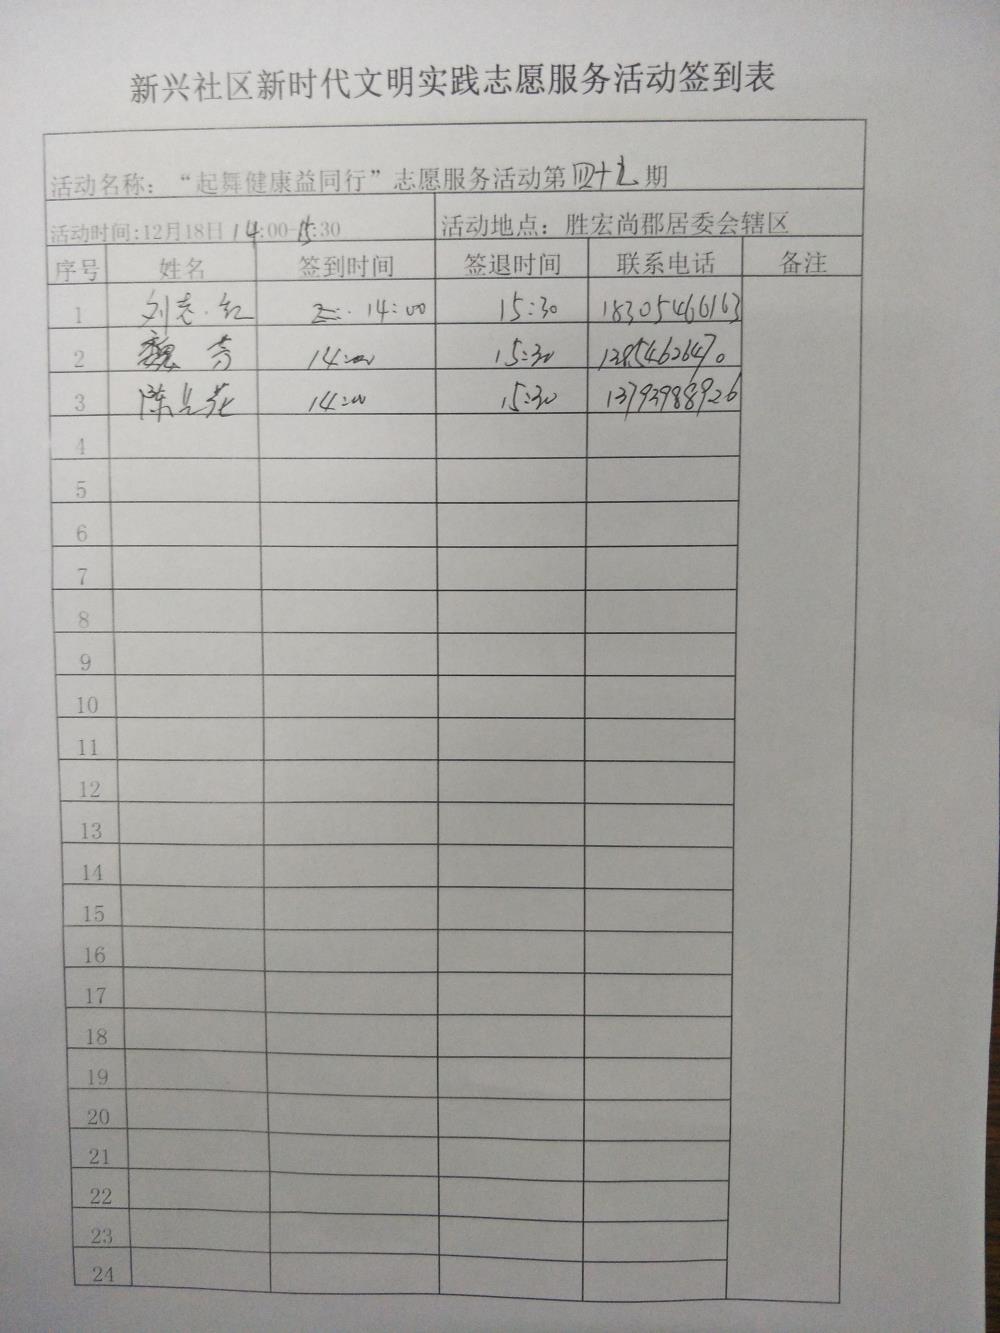 新兴社区新时代文明实践志愿服务活动签到表
活动名称：“起舞健康益同行”志愿服务活动第四十九期
活动时间:12月18日14:00-15:30 活动地点：胜宏尚郡居委会辖区
序号 姓名 签到时间 签退时间 联系电话 备注
1 刘志红 14:00 15:30 18305466163
2 魏芳 14:00 15:30
3 陈兰花 14:00 15:30 13793988926
4
5
6
7
8
9
10
11
12
13
14
15
16
17
18
19
20
21
22
23
24